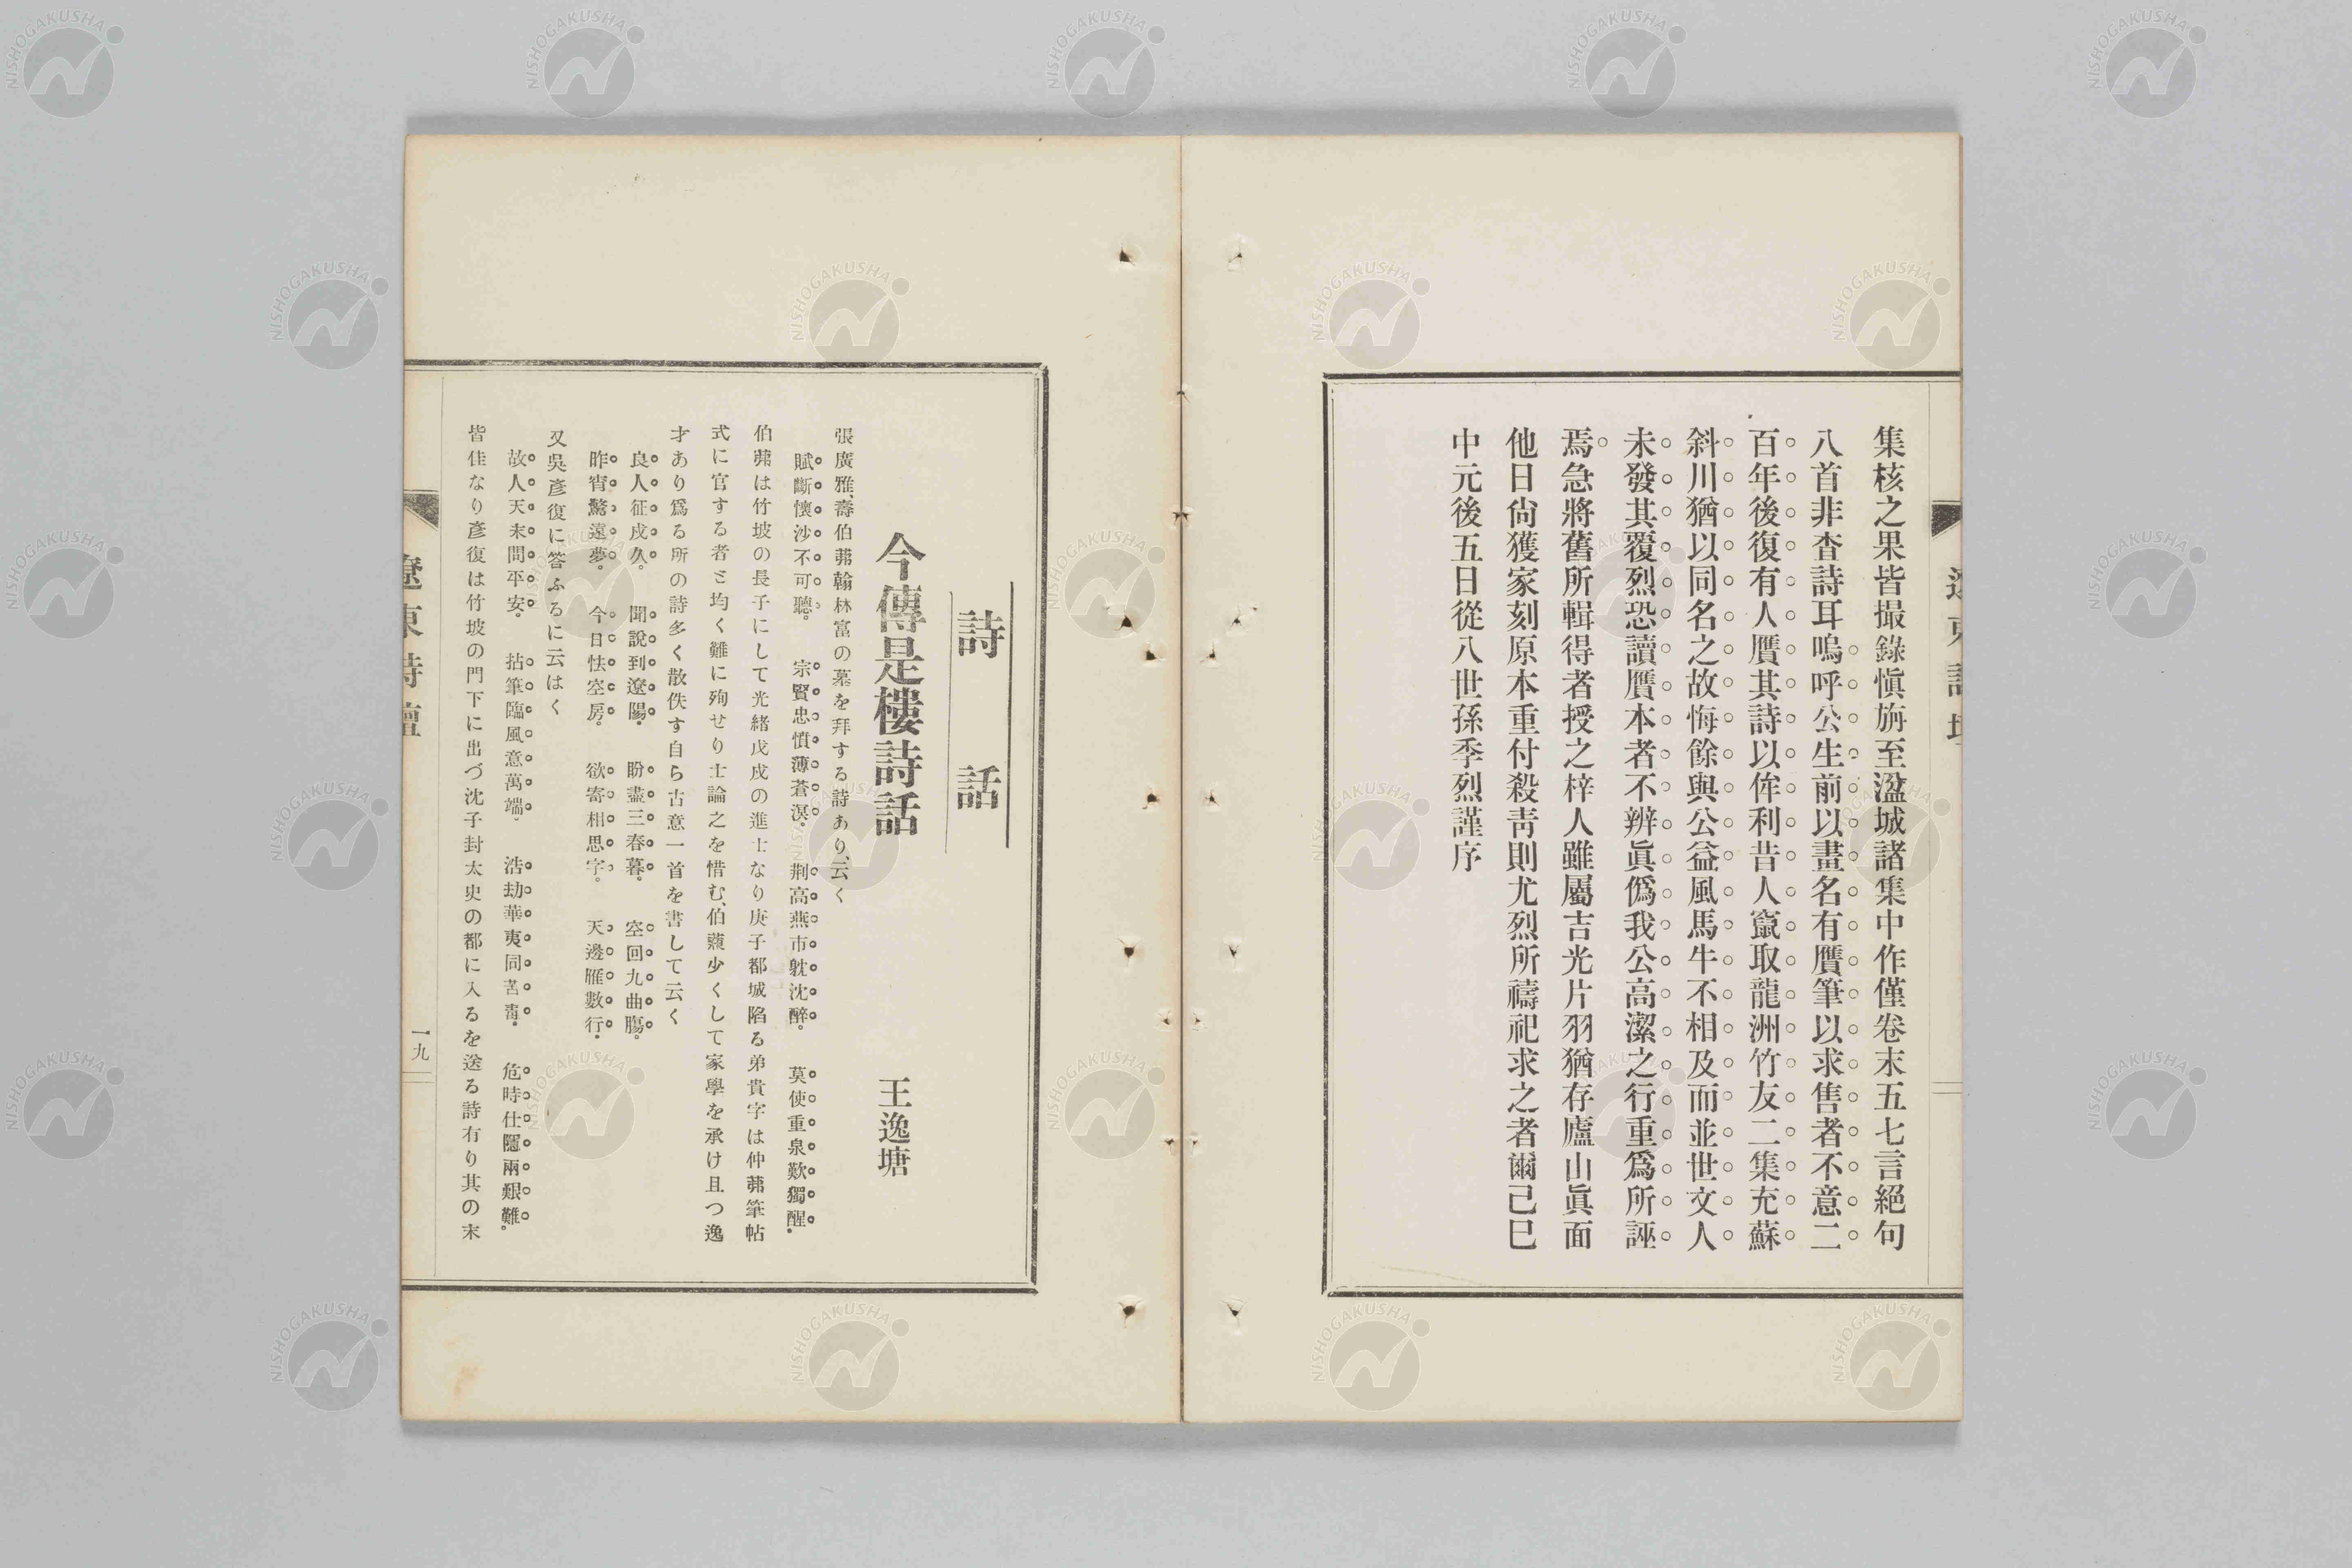 集核之果皆撮錄愼旃至湓城諸集中作僅卷末五七言絕句
八首非査詩耳嗚呼公生前以畫名有贋筆以求售者不意二
百年後復有人贋其詩以侔利昔人竄取龍洲竹友二集充蘇
斜川猶以同名之故悔餘與公益風馬牛不相及而並世文人
未發其覆烈恐讀贋本者不辨眞僞我公高潔之行重爲所誣
焉急將舊所輯得者授之梓人雖屬吉光片羽猶存廬山眞面
他日尙獲家刻原本重付殺靑則尤烈所禱祀求之者爾己巳
中元後五日從八世孫季烈謹序
詩話
今傳是樓詩話 王逸塘
張廣雅、壽伯茀翰林富の墓を拜する詩あり、云く
賦斷懷沙不可聽。 宗賢忠憤薄蒼溟。 荆高燕市躭沈醉。 莫使重泉歎獨醒。
伯茀は竹坡の長子にして光緒戊戌の進士なり庚子都城陷る弟貴字は仲茀筆帖
式に官する者と均く難に殉せり士論之を惜む、伯茀少くして家學を承け且つ逸
才あり爲る所の詩多く散佚す自ら古意一首を書して云く
良人征戍久。 聞說到遼陽。 盼盡三春暮。 空回九曲腸。
昨宵驚遠夢。 今日怯空房。 欲寄相思字。 天邊雁數行。
又吳彥復に答ふるに云はく
故人天末問平安。 拈筆臨風意萬端。 浩劫華夷同苦毒。 危時仕隱兩艱難。
皆佳なり彥復は竹坡の門下に出づ沈子封太史の都に入るを送る詩有り其の末
遼東詩壇
一九
NISHOGAKUSHA